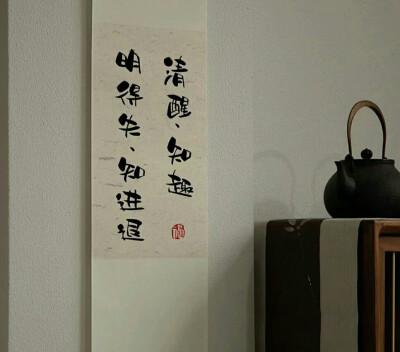 清醒、知趣
明得失、知进退